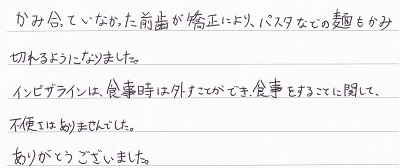 かみ合っていなかった前歯が矯正により、パスタなどの麺もかみ
切れるようになりました。
インビザラインは、食事時は外すことができ、食事をすることに関して、
不便さはありませんでした。
ありがとうございました。